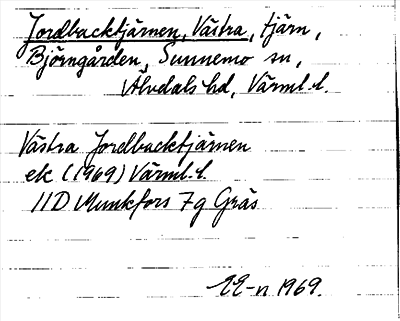 Jordbacktjärnen, Västra, tjärn,
Björngården, Sunnemo sn,
Älvdals hd, Värml. l.
Västra Jordbacktjärnen
ek (1969) Värml. l.
11D Munkfors 7g Gräs
1969.